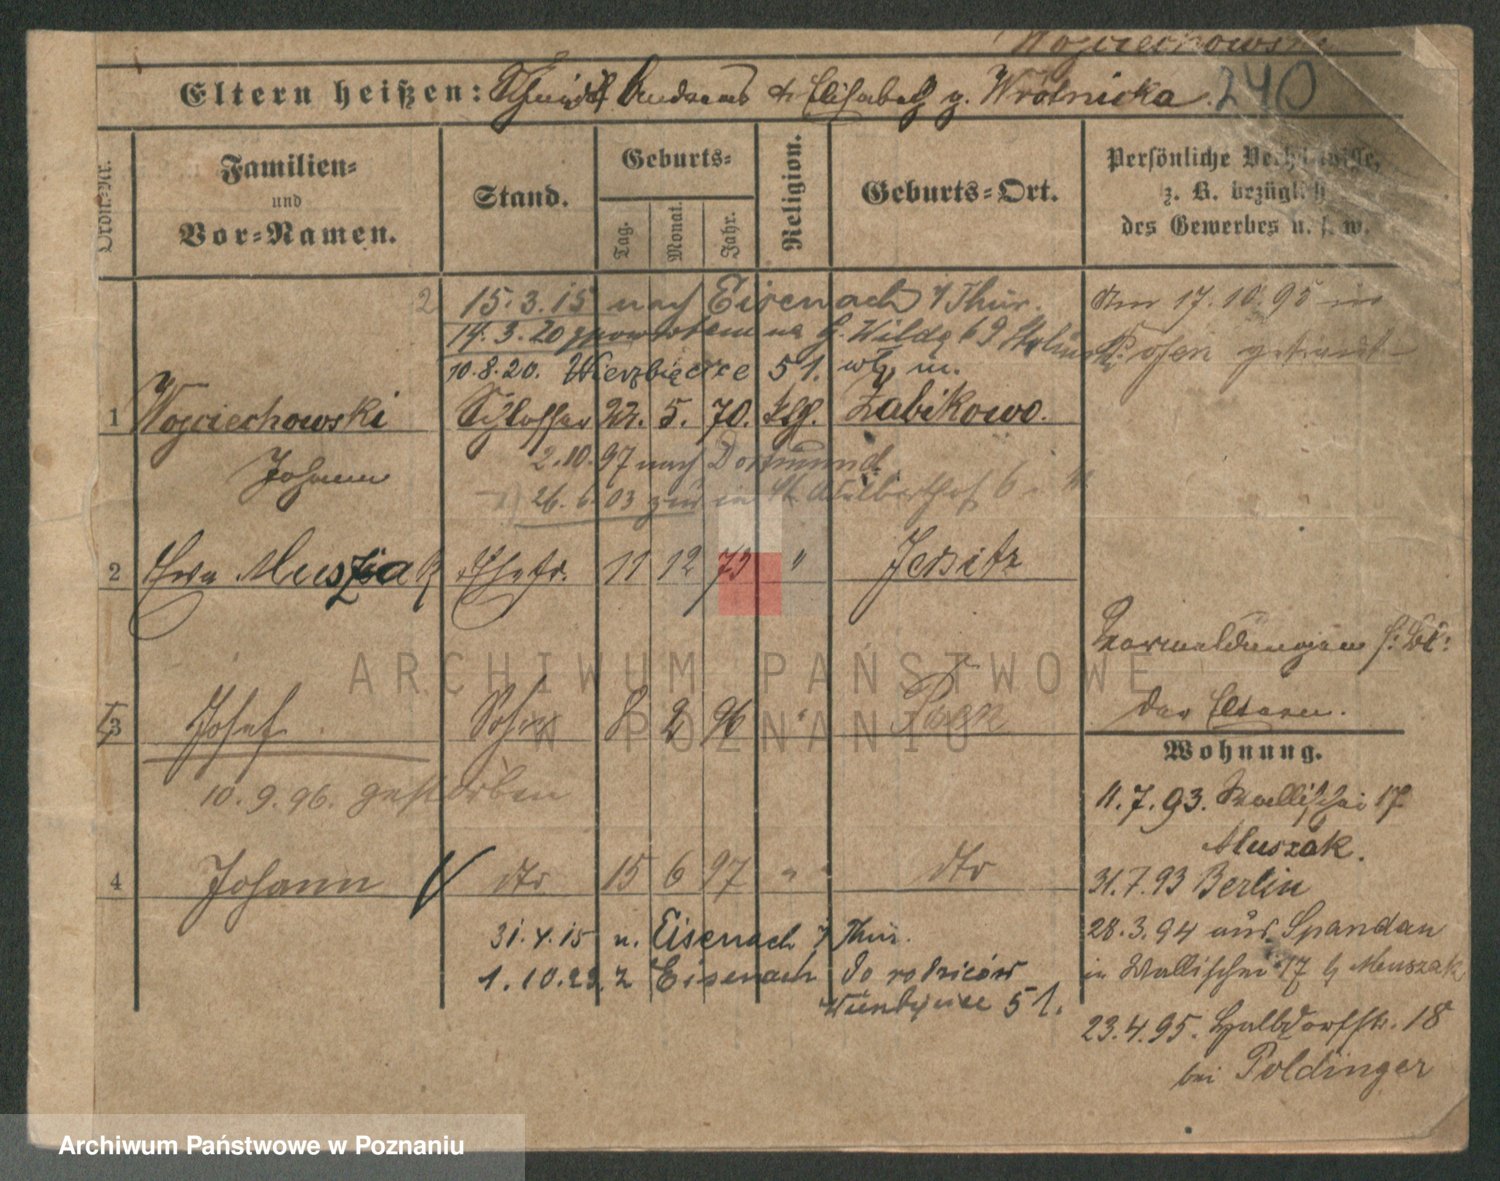 Wojciechowski
Eltern heißen: Schmidt Andreas & Elisabeth g. Wrotnicka. 240
Ordn.-Nr.
Familien- und Vor-Namen.
Stand.
Geburts-
Tag. Monat. Jahr.
Religion.
Geburts-Ort.
Persönliche Verhältnisse,
z. B. bezüglich
des Gewerbes u. s. w.
2 15.3.15 nach Eisenach i/Thür.
14.3.20 z powrotem na G. Wilda 69
10.8.20. Wierzbięcice 51. wł. m.
Am 17.10.95 in
Posen getraut
1 Wojciechowski Schlosser 22. 5. 70. kth. Żabikowo.
Johann
2.10.97 nach Dortmund
26.6.03 zur. in St. Adalberthof 6
2 Ewa Muszak Ehefr. 11 12 73 " Jersitz
Vormeldungen s. Bl.
der Eltern.
3 Josef Sohn 8 2 96 " Posen
10.9.96. gestorben
Wohnung.
11.7.93. Wallischei 17
Muszak.
4 Johann dto 15 6 97 " " dto
31.7.93 Berlin
31.4.15 n. Eisenach i/Thür.
28.3.94 aus Spandau
1.10.23. z Eisenach do rodziców
in Wallischei 17 b/ Muszak
51.
23.4.95. Halbdorfstr. 18
bei Poldinger
ARCHIWUM PAŃSTWOWE
W POZNANIU
Archiwum Państwowe w Poznaniu